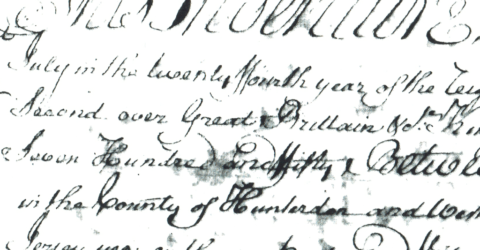 This Indenture
July in the twenty ffourth year of the Reig
Second over Great Brittain &c
Seven Hundred and ffifty Betwe
in the County of Hunterdon and West
Jersey